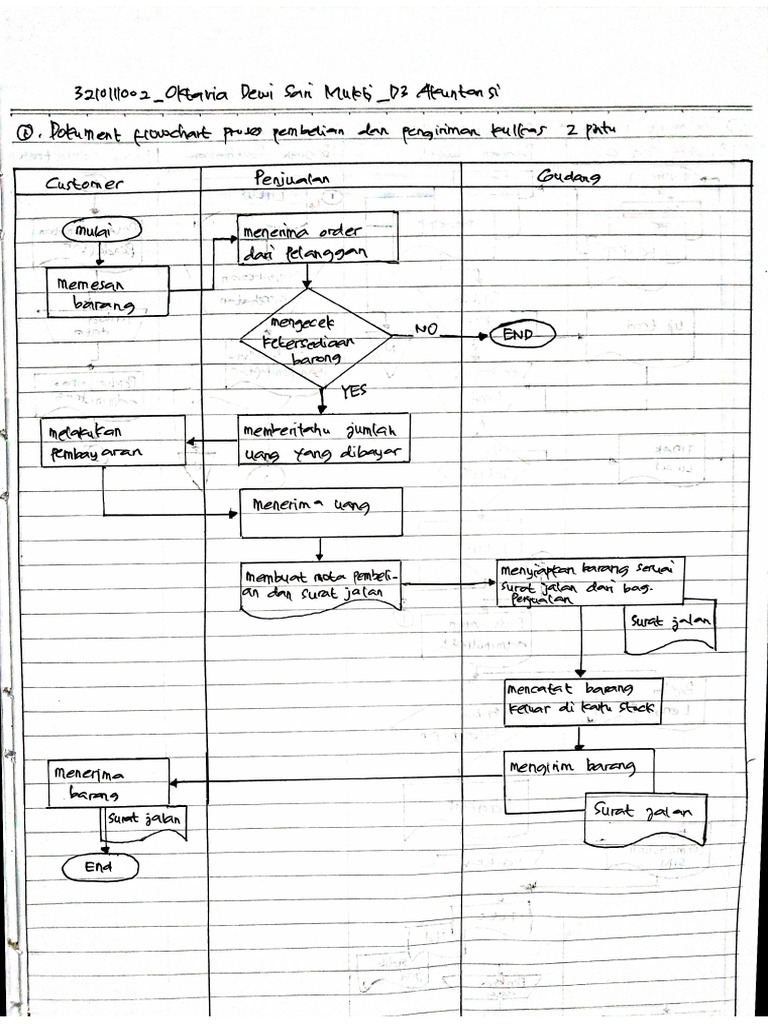 3210111002_Oktavia Dewi Sari Mukti_D3 Akuntansi
①. Dokument flowchart proses pembelian dan pengiriman kulkas 2 pintu
Customer
Penjualan
Gudang
mulai
memesan
barang
menerima order
dari Pelanggan
mengecek
ketersediaan
barang
NO
END
YES
memberitahu jumlah
uang yang dibayar
melakukan
pembayaran
menerima uang
membuat nota pembeli-
an dan surat jalan
menyiapkan barang sesuai
surat jalan dari bag.
Penjualan
surat jalan
mencatat barang
keluar di kartu stock
mengirim barang
Surat jalan
menerima
barang
surat jalan
End